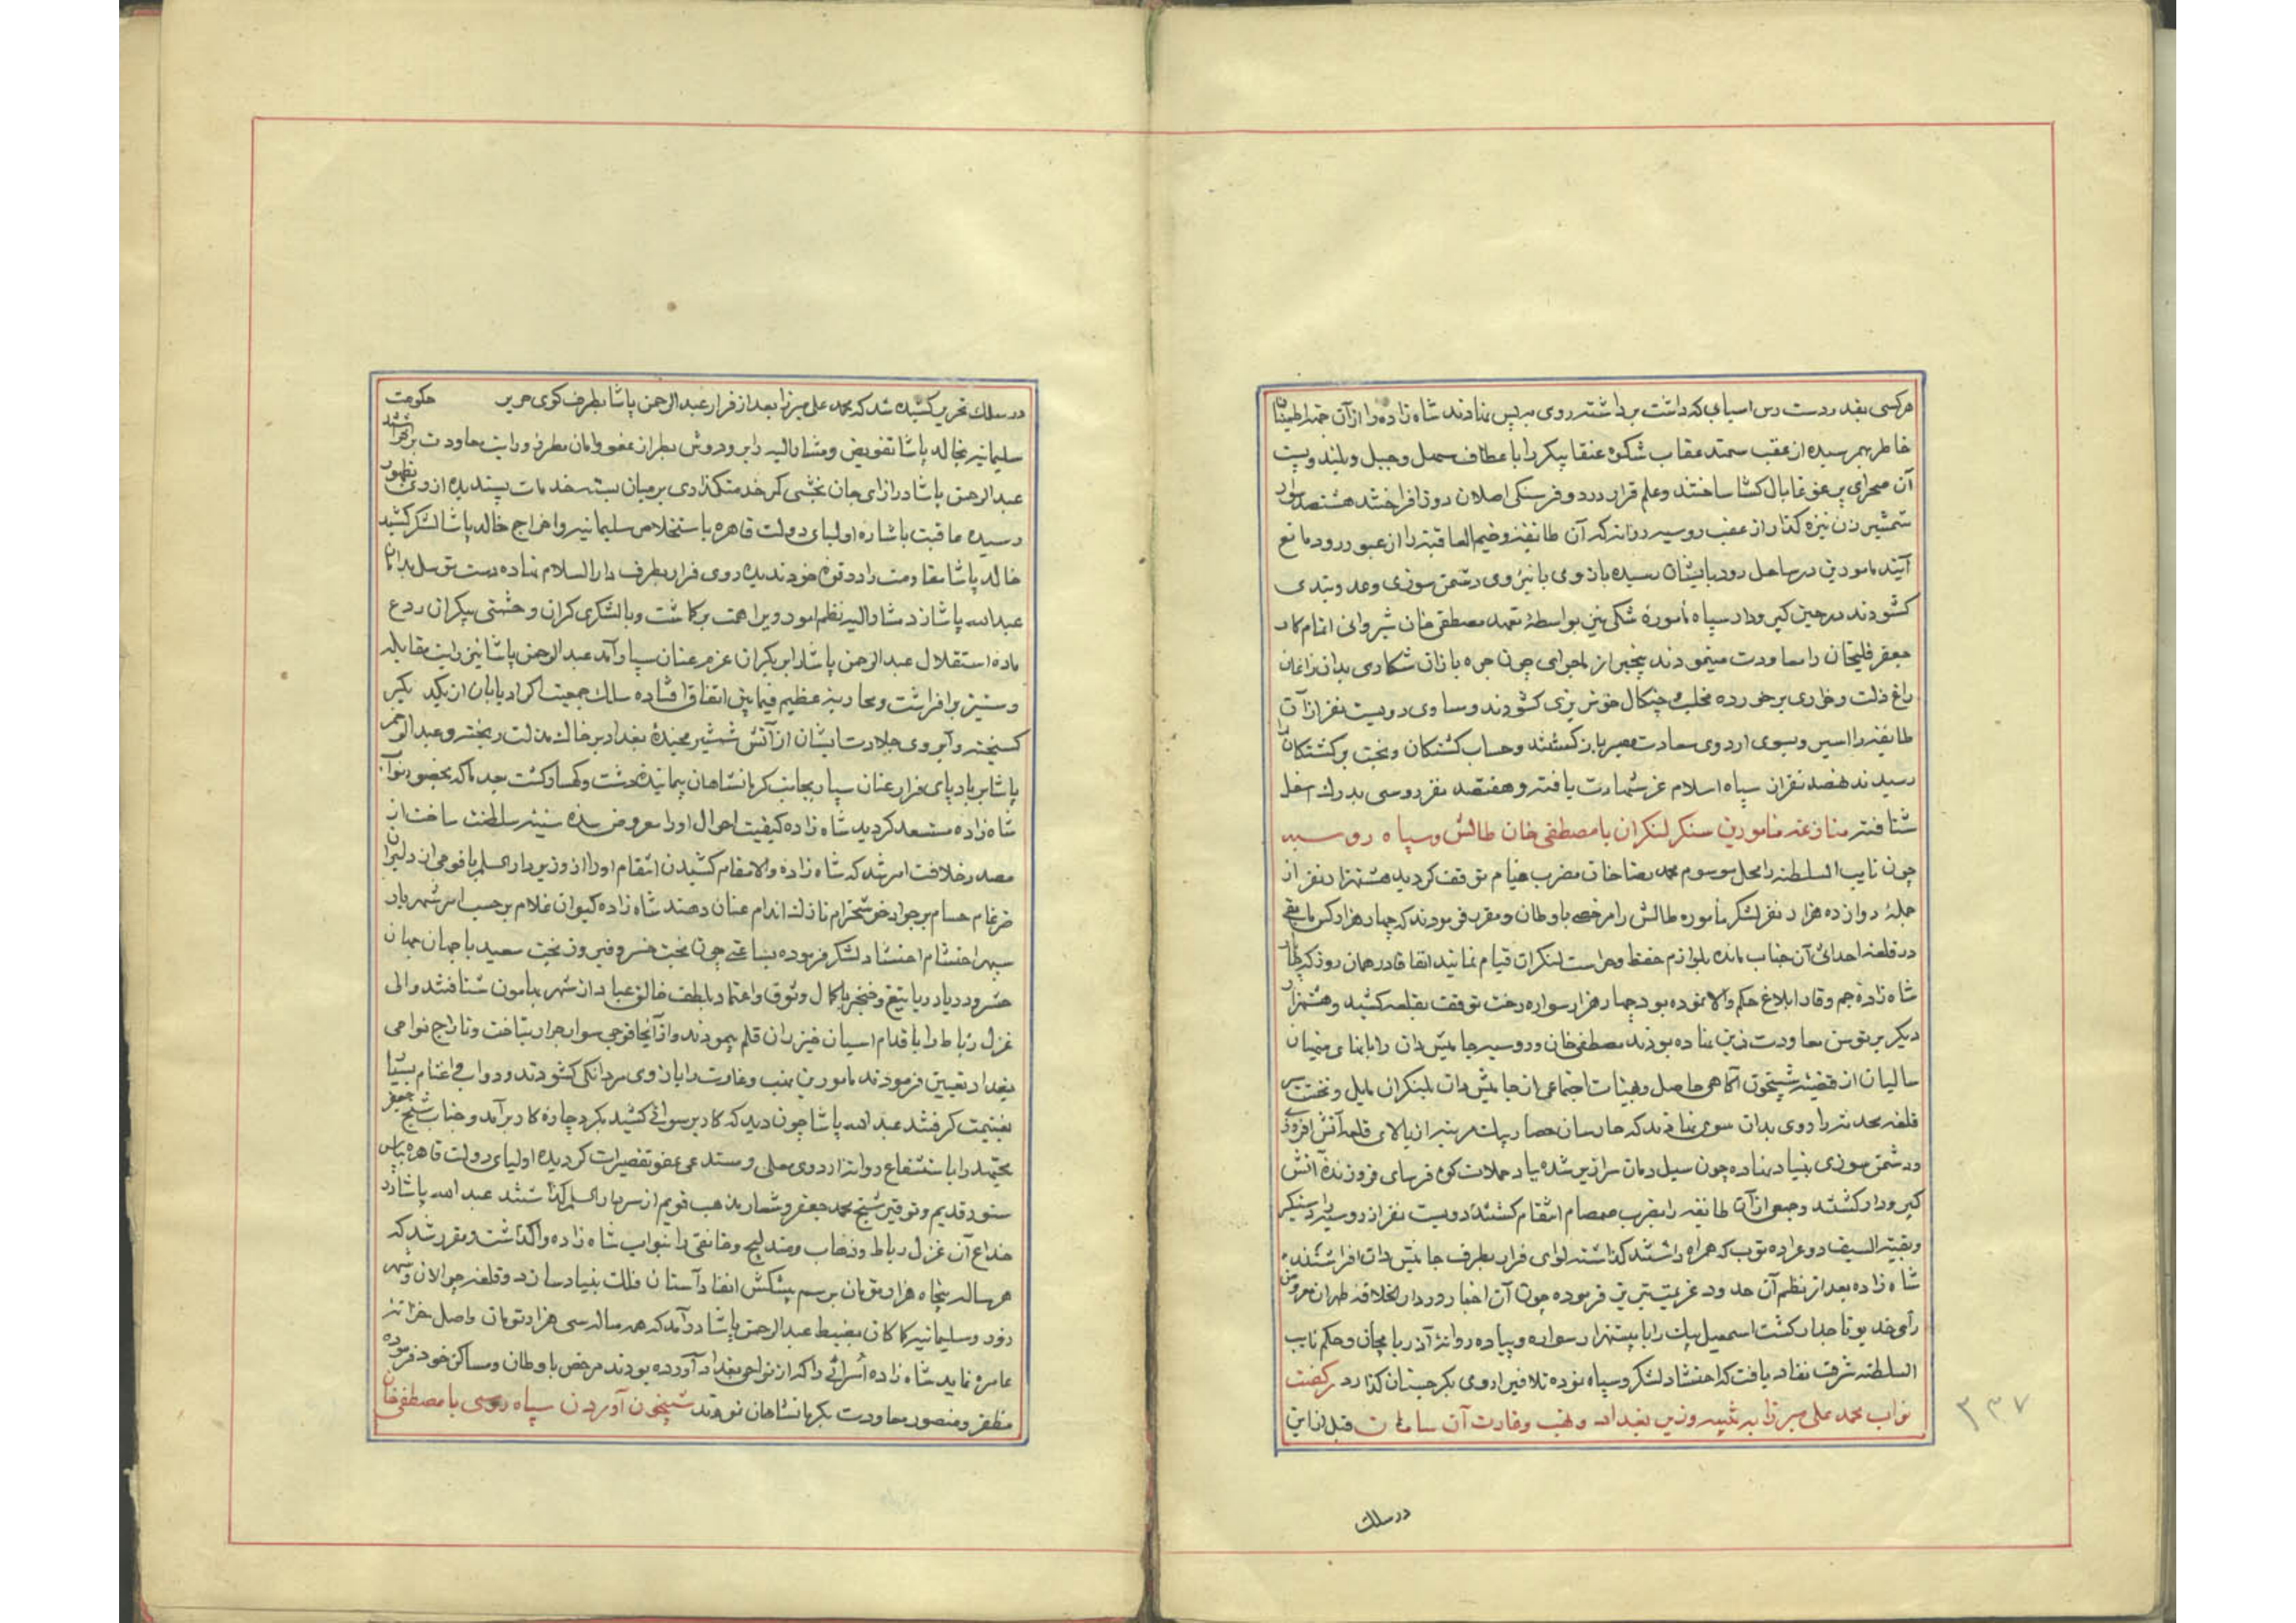 هر کسی بقدر دست رس اسیابی که داشت برداشته روی بر پس نهادند شاه زاده را از آن جهة اطمینان
خاطر بهم رسیده از عقب سمند عقاب شکوه عنقا پیکر را با عطاف سهل و جبل و بلند و پست
آن صحرای پر غوغا بال کشا ساختند و علم قرار در دو فرسنکی اصلان دوز افراختند هشتصد سوار
شمشیر زن نیزه کذار از عقب روسیه روانه که آن طایفهٔ وخیم العاقبة را از عبور رود مانع
آیند مامورین در ساحل رود بایشان رسیده بازوی با نیروی دشمن سوزی و عدو بندی
کشودند در حین کیر و دار سپاه مأمورهٔ شکی نیز بواسطهٔ تعهد مصطفی خان شیروانی اتمام کار
جعفر قلیخان را معاودت مینمودند پنجیر از ماجرای چون جره بازان شکاری بدان زاغان
باغ ذلت و خواری برخورده مخلب و چنکال خون ریزی کشودند و مساوی دویست نفر از آن
طایفه را اسیر و بسوی اردوی سعادت مصیر باز کشتند و حساب کشتکان و نخبت برکشتکان را
رسیدند هفصد نفر از سپاه اسلام عز شهادت یافته و هفتصد نفر روسی بدرک اسفل
شتافته منازعهٔ مامورین سنکر لنکران با مصطفی خان طالش و سپاه روسیه
چون نایب السلطنه را محل موسوم محمد رضا خان مضرب خیام توقف کردید هشتهزار نفر از
جملهٔ دوازده هزار نفر لشکر مأموره طالش را مرخص باوطان و مقرر فرمودند که چهار هزار کس مابقی
در قلعهٔ احداثی آن جناب مانده بلوازم حفظ و حراست لنکران قیام نمایند اتفاقا در همان روز که
شاه زادهٔ جم وقار ابلاغ حکم والا نموده بود چهار هزار سواره رخت توقف بقلعه کشید و هشتهزار
دیکر بر توسن معاودت زین نهاده بودند مصطفی خان و روسیه جامیش وان را بانهای منهیان
سالیان از قضیهٔ شبیخون آکاهی حاصل و بهیئات اجتماعی از جامیش وان بلنکران مایل و نخست بر
قلعهٔ محدثه را روی بدان سوی نهادند که حارسان حصار یک مرتبه از بالای قلعه آتش افروزی
و دشمن سوزی بنیاد نهاده چون سیل دمان سرازیر شده یاد حملات کوه فرسای فروزندهٔ آتش
کیر و دار کشتند و جمعی از آن طایفه را بضرب صمصام انتقام کشتند دویست نفر از روسیه را دستکیر
و بقیة السیف دو عراده توب که همراه داشتند کذاشته لوای فرار بطرف جامیش وان افراشتند
شاه زاده بعد از نظم آن حدود عزیمت تبریز فرموده چون آن اخبار در دار الخلافه طهران معروض
رأی خدیو تاجدار کشت اسمعیل بیک را با بیستهزار سواره و پیاده روانهٔ آذربایجان و حکم نایب
السلطنه شرف نفاد یافت که احتشاد لشکر و سپاه نموده تلافی از اروی بکرجستان کذارد رکضت
نواب محمد علی میرزا به تنبیه وزیر بغداد و نهب و غارت آن سامان قبل از این
۳۳۷
در سلک
در سلک تحریر کشیده شد که محمد علی میرزا بعد از فرار عبد الرحمن پاشا بطرف کوی حریر حکومت
سلیمانیه بخالد پاشا تفویض و مشار الیه را بر و دوش بطراز عفو و امان مطرز و رایت معاودت برافراشتند
عبد الرحمن پاشا در ازای جان بخشی کمر خدمتکذاری بر میان بسته خدمات پسندیده از وی بظهور
رسیده عاقبت باشاره اولیای دولت قاهره باستخلاص سلیمانیه و اخراج خالد پاشا لشکر کشید
خالد پاشا مقاومت را در قوه خود ندیده روی فرار بطرف دار السلام نهاده دست توسل بدامان
عبد الله پاشا زد مشار الیه نظم امور ویرا همت برکاشت و با لشکری کران و حشمتی بیکران ردع
ماده استقلال عبد الرحمن پاشا را بر یکران عزم عنان سپار آمد عبد الرحمن پاشا نیز رایت مقابله
و ستیز برافراشت و محاربهٔ عظیم فیمابین اتفاق افتاده سلک جمعیت اکراد بابان از یکدیکر
کسیخته و آبروی جلادت ایشان از آتش شمشیر مجندهٔ بغداد بر خاک مذلت ریخته و عبد الرحمن
پاشا بر باد پای فرار عنان سپار بجانب کرمانشاهان پیمانیدهٔ دشت و کهسار کشت بعد ما که بحضور نواب
شاه زاده مستسعد کردید شاه زاده کیفیت احوال او را معروض سده سنیهٔ سلطنت ساخت از
مصدر خلافت امر شد که شاه زاده والا مقام کشیدن انتقام او را از وزیر دار السلم با فوجی از دلیران
ضرغام حسام بر جواد خوشخرام نازک اندام عنان دهند شاه زاده کیوان غلام بر حسب امر شهریار
سپهر احتشام احتشاد لشکر فرموده بساعتی چون بخت خسرو فیروز بخت سعید با جهان جهان
حشر و دریا دریا تیغ و خنجر با کمال وثوق و اعتماد بلطف خالق عباد از شهر بهامون شتافتند و الی
غزل رباط را با قدام اسبان خیزران قلم پیمودند و از آنجا فوجی سوار جرار بتاخت و تاراج نواحی
بغداد تعیین فرمودند مامورین بنهب و غارت را بازوی مردانکی کشودند و دواب و اغنام بسیار
بغنیمت کرفتند عبد الله پاشا چون دید که کار برسوائی کشید بکرد چاره کار برآمد و جناب شیخ جعفر
مجتهد را باستشفاع روانهٔ اردوی معلی و مستدعی عفو تقصیرات کردیده اولیای دولت قاهره بپاس
سنور قدیم و توقیر شیخ محمد جعفر و شعار مذهب قویم از سر دار السلم کذشتند عبد الله پاشا در
خداع آن غزل رباط و ذهاب و مندلیج و خانقی را بنواب شاه زاده واکذاشت و مقرر شد که
هر ساله پنجاه هزار تومان برسم پیشکش انفاد آستان فلک بنیاد سازد و قلعه چوالان و شهر
زور و سلیمانیه کما کان بضبط عبد الرحمن پاشا درآمد که هر ساله سی هزار تومان واصل خزانهٔ
عامره نماید شاه زاده اُسرائی را که از نواحی بغداد آورده بودند مرخص باوطان و مساکن خود فرموده
مظفر و منصور معاودت بکرمانشاهان نمودند شبیخون آوردن سپاه روسی با مصطفی خان